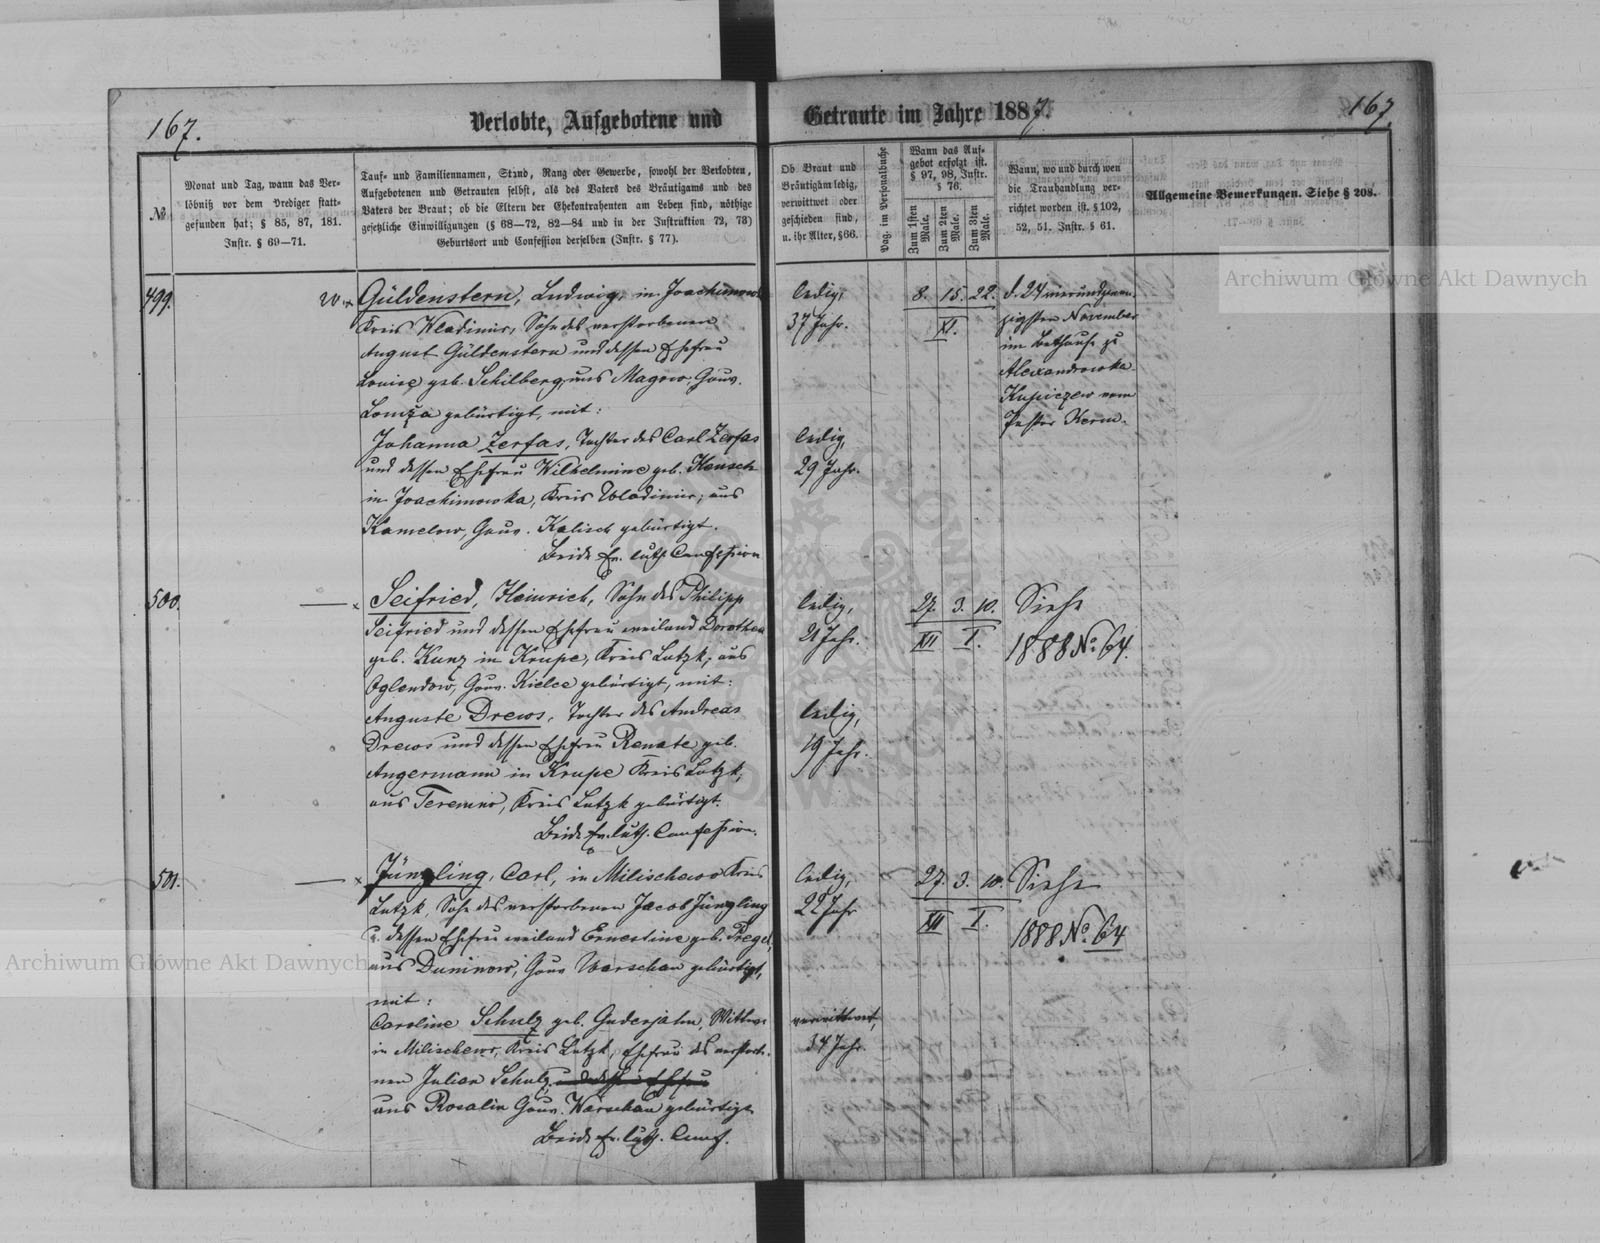 167.
Verlobte, Aufgebotene und
Getraute im Jahre 1887.
167.
№
Monat und Tag, wann das Ver-
löbniß vor dem Prediger statt-
gefunden hat; § 85, 87, 181.
Instr. § 69—71.
Tauf- und Familiennamen, Stand, Rang oder Gewerbe, sowohl der Verlobten,
Aufgebotenen und Getrauten selbst, als des Vaters des Bräutigams und des
Vaters der Braut; ob die Eltern der Ehekontrahenten am Leben sind, nöthige
gesetzliche Einwilligungen (§ 68—72, 82—84 und in der Instruktion 72, 73)
Geburtsort und Confession derselben (Instr. § 77).
Ob Braut und
Bräutigam ledig,
verwittwet oder
geschieden sind,
u. ihr Alter, §66.
Pag. im Personalbuche
Wann das Auf-
gebot erfolgt ist.
§ 97, 98, Instr.
§ 76.
Zum 1sten Male.
Zum 2ten Male.
Zum 3ten Male.
Wann, wo und durch wen
die Trauhandlung ver-
richtet worden ist. § 102,
52, 51. Instr. § 61.
Allgemeine Bemerkungen. Siehe § 208.
499.
Güldenstern, Ludwig, in
Kreis Wladimir, Sohn des verstorbenen
August Güldenstern und dessen Ehefrau
Louise geb. Schilberg, aus Magow, Gouv.
Lomża gebürtigt, mit:
Johanna Zerfas, Tochter des Carl Zerfas
und dessen Ehefrau Wilhelmine geb.
in Joachimowka, Kreis Wladimir, aus
Kamelow, Gouv. Kalisch gebürtigt.
Beide Ev. luth. Confession
ledig,
37 Jahr.
ledig,
29 Jahr.
8. 15. 22.
XI.
d. 24 vierundzwan-
zigsten November
im Bethause zu
Alexandrowka
Kupiczew vom
Pastor Kerm.
500.
Seifried, Heinrich, Sohn des Philipp
Seifried und dessen Ehefrau weiland Dorothea
geb. Kunz in Krupe, Kreis Lutzk, aus
Oglendow, Gouv. Kielce gebürtigt, mit:
Auguste Drews, Tochter des Andreas
Drews und dessen Ehefrau Renate geb.
Angermann in Krupe Kreis Lutzk,
aus Teremno, Kreis Lutzk gebürtigt.
Beide Ev. luth. Confession.
ledig,
21 Jahr.
ledig,
19 Jahr.
27. 3. 10.
XII I.
Siehe
1888 No. 64.
501.
Jüngling, Carl, in Milischewo Kreis
Lutzk, Sohn des verstorbenen Jacob Jüngling
u. dessen Ehefrau weiland Ernestine geb.
aus Duninow, Gouv Warschau gebürtigt,
mit:
Caroline Schulz geb. Guderjahn, Wittwe
in Milischewo, Kreis Lutzk, Ehefrau des verstorbe-
nen Julian Schulz, und dessen Ehefrau
aus Rosalin Gouv. Warschau gebürtigt
Beide Ev. luth. Conf.
ledig,
22 Jahr
verwittwet,
34 Jahr.
27. 3. 10.
XII I.
Siehe
1888 No. 64
Archiwum Główne Akt Dawnych
Archiwum Główne Akt Dawnych